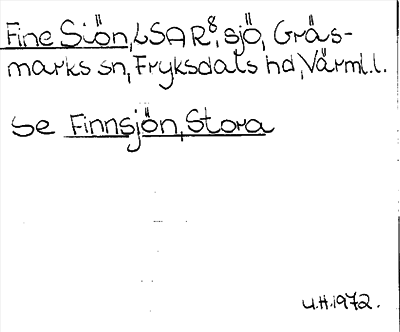 Fine Siön, LSAR⁸, sjö, Gräs-
marks sn, Fryksdals hd, Värml.l.
Se Finnsjön, Stora
U.H.1972.